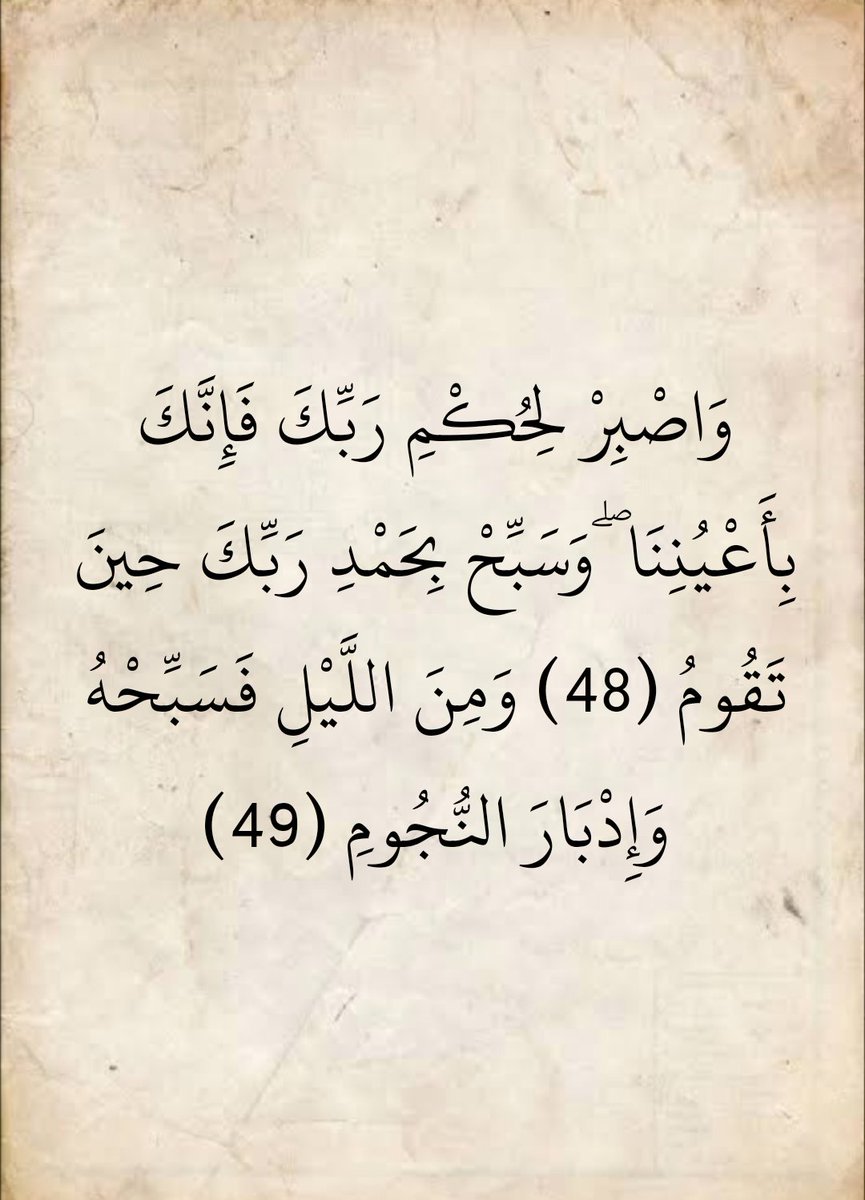 وَاصْبِرْ لِحُكْمِ رَبِّكَ فَإِنَّكَ
بِأَعْيُنِنَا ۖ وَسَبِّحْ بِحَمْدِ رَبِّكَ حِينَ
تَقُومُ (48) وَمِنَ اللَّيْلِ فَسَبِّحْهُ
وَإِدْبَارَ النُّجُومِ (49)